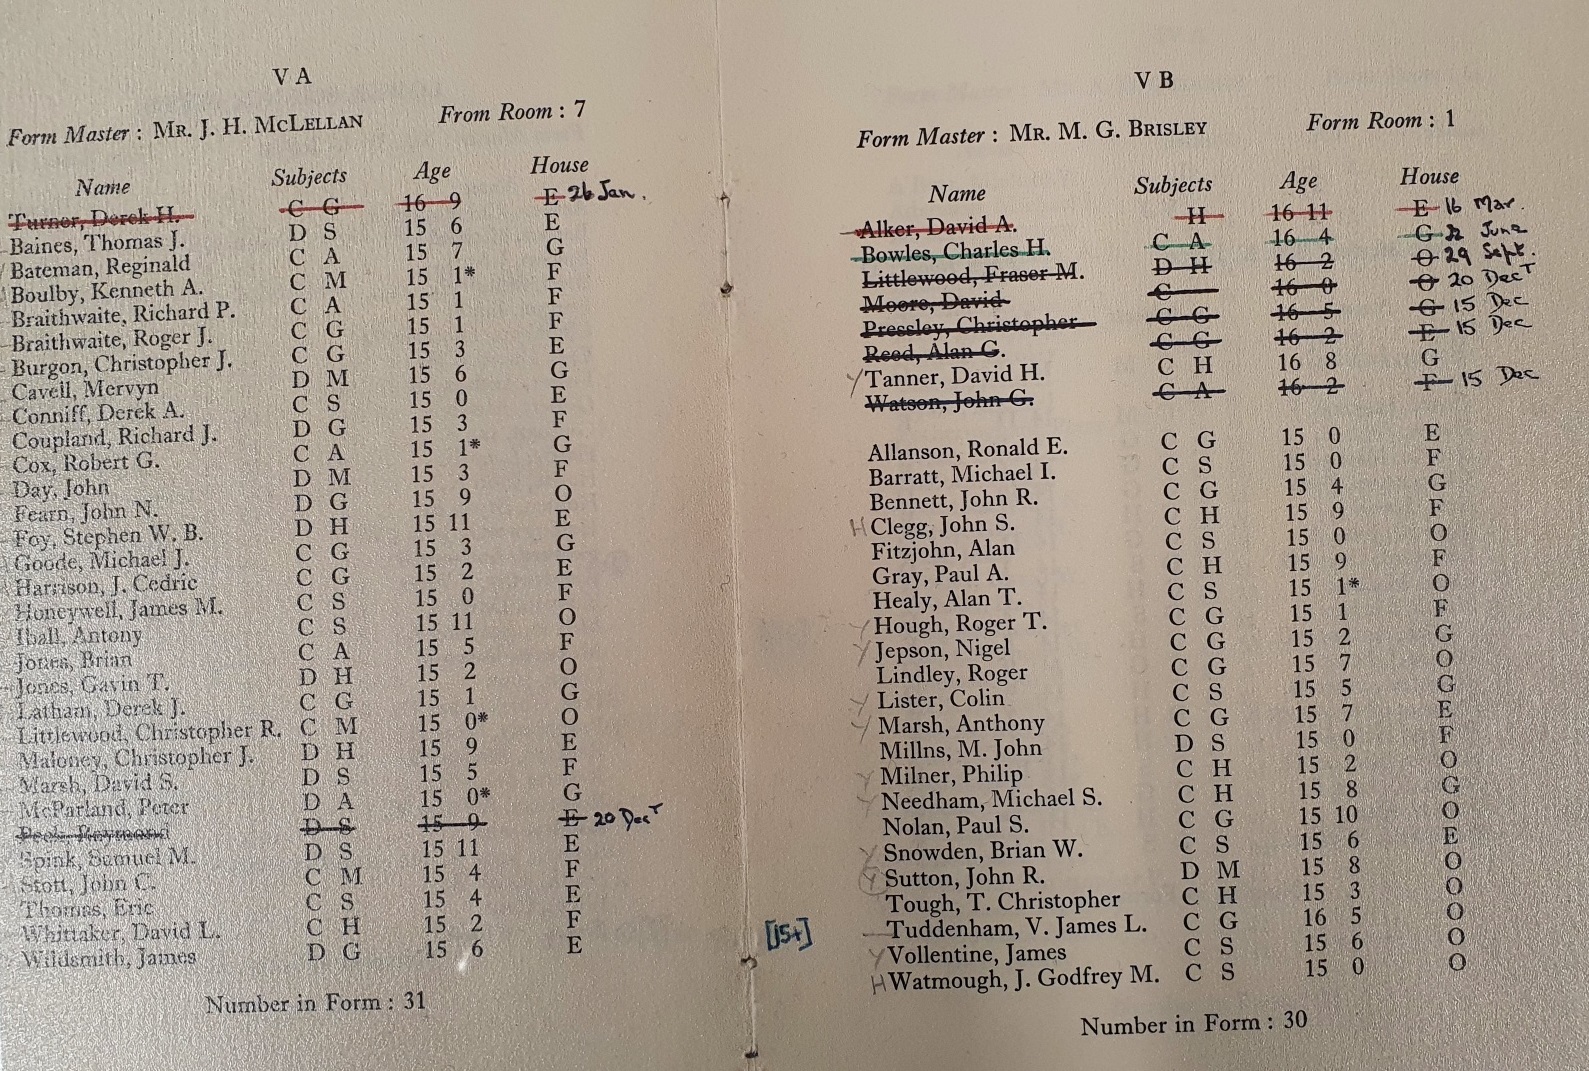 V A
Form Master : MR. J. H. MCLELLAN From Room : 7
Name Subjects Age House
Turner, Derek H. C G 16 9 E 26 Jan.
Baines, Thomas J. D S 15 6 E
Bateman, Reginald C A 15 7 G
Boulby, Kenneth A. C M 15 1* F
Braithwaite, Richard P. C A 15 1 F
Braithwaite, Roger J. C G 15 1 F
Burgon, Christopher J. C G 15 3 E
Cavell, Mervyn D M 15 6 G
Conniff, Derek A. C S 15 0 E
Coupland, Richard J. D G 15 3 F
Cox, Robert G. C A 15 1* G
Day, John D M 15 3 F
Fearn, John N. D G 15 9 O
Foy, Stephen W. B. D H 15 11 E
Goode, Michael J. C G 15 3 G
Harrison, J. Cedric C G 15 2 E
Honeywell, James M. C S 15 0 F
Iball, Antony C S 15 11 O
Jones, Brian C A 15 5 F
Jones, Gavin T. D H 15 2 O
Latham, Derek J. C G 15 1 G
Littlewood, Christopher R. C M 15 0* O
Maloney, Christopher J. D H 15 9 E
Marsh, David S. D S 15 5 F
McParland, Peter D A 15 0* G
Raymond D S 15 9 E 20 Dec T
Spink, Samuel M. D S 15 11 E
Stott, John C. C M 15 4 F
Thomas, Eric C S 15 4 E
Whittaker, David L. C H 15 2 F
Wildsmith, James D G 15 6 E
Number in Form : 31
[15+]
V B
Form Master : MR. M. G. BRISLEY Form Room : 1
Name Subjects Age House
Alker, David A. H 16 11 E 16 Mar.
Bowles, Charles H. C A 16 4 G 22 June
Littlewood, Fraser M. D H 16 2 O 29 Sept.
Moore, David C 16 0 O 20 Dec T
Pressley, Christopher C G 16 5 G 15 Dec
Reed, Alan G. C G 16 2 E 15 Dec
Y Tanner, David H. C H 16 8 G
Watson, John G. C A 16 2 F 15 Dec
Allanson, Ronald E. C G 15 0 E
Barratt, Michael I. C S 15 0 F
Bennett, John R. C G 15 4 G
H Clegg, John S. C H 15 9 F
Fitzjohn, Alan C S 15 0 O
Gray, Paul A. C H 15 9 F
Healy, Alan T. C S 15 1* O
Y Hough, Roger T. C G 15 1 F
Y Jepson, Nigel C G 15 2 G
Lindley, Roger C G 15 7 O
Y Lister, Colin C S 15 5 G
Y Marsh, Anthony C G 15 7 E
Millns, M. John D S 15 0 F
Y Milner, Philip C H 15 2 O
Y Needham, Michael S. C H 15 8 G
Nolan, Paul S. C G 15 10 O
Y Snowden, Brian W. C S 15 6 E
Y Sutton, John R. D M 15 8 O
Tough, T. Christopher C H 15 3 O
Tuddenham, V. James L. C G 16 5 O
Y Vollentine, James C S 15 6 O
H Watmough, J. Godfrey M. C S 15 0 O
Number in Form : 30